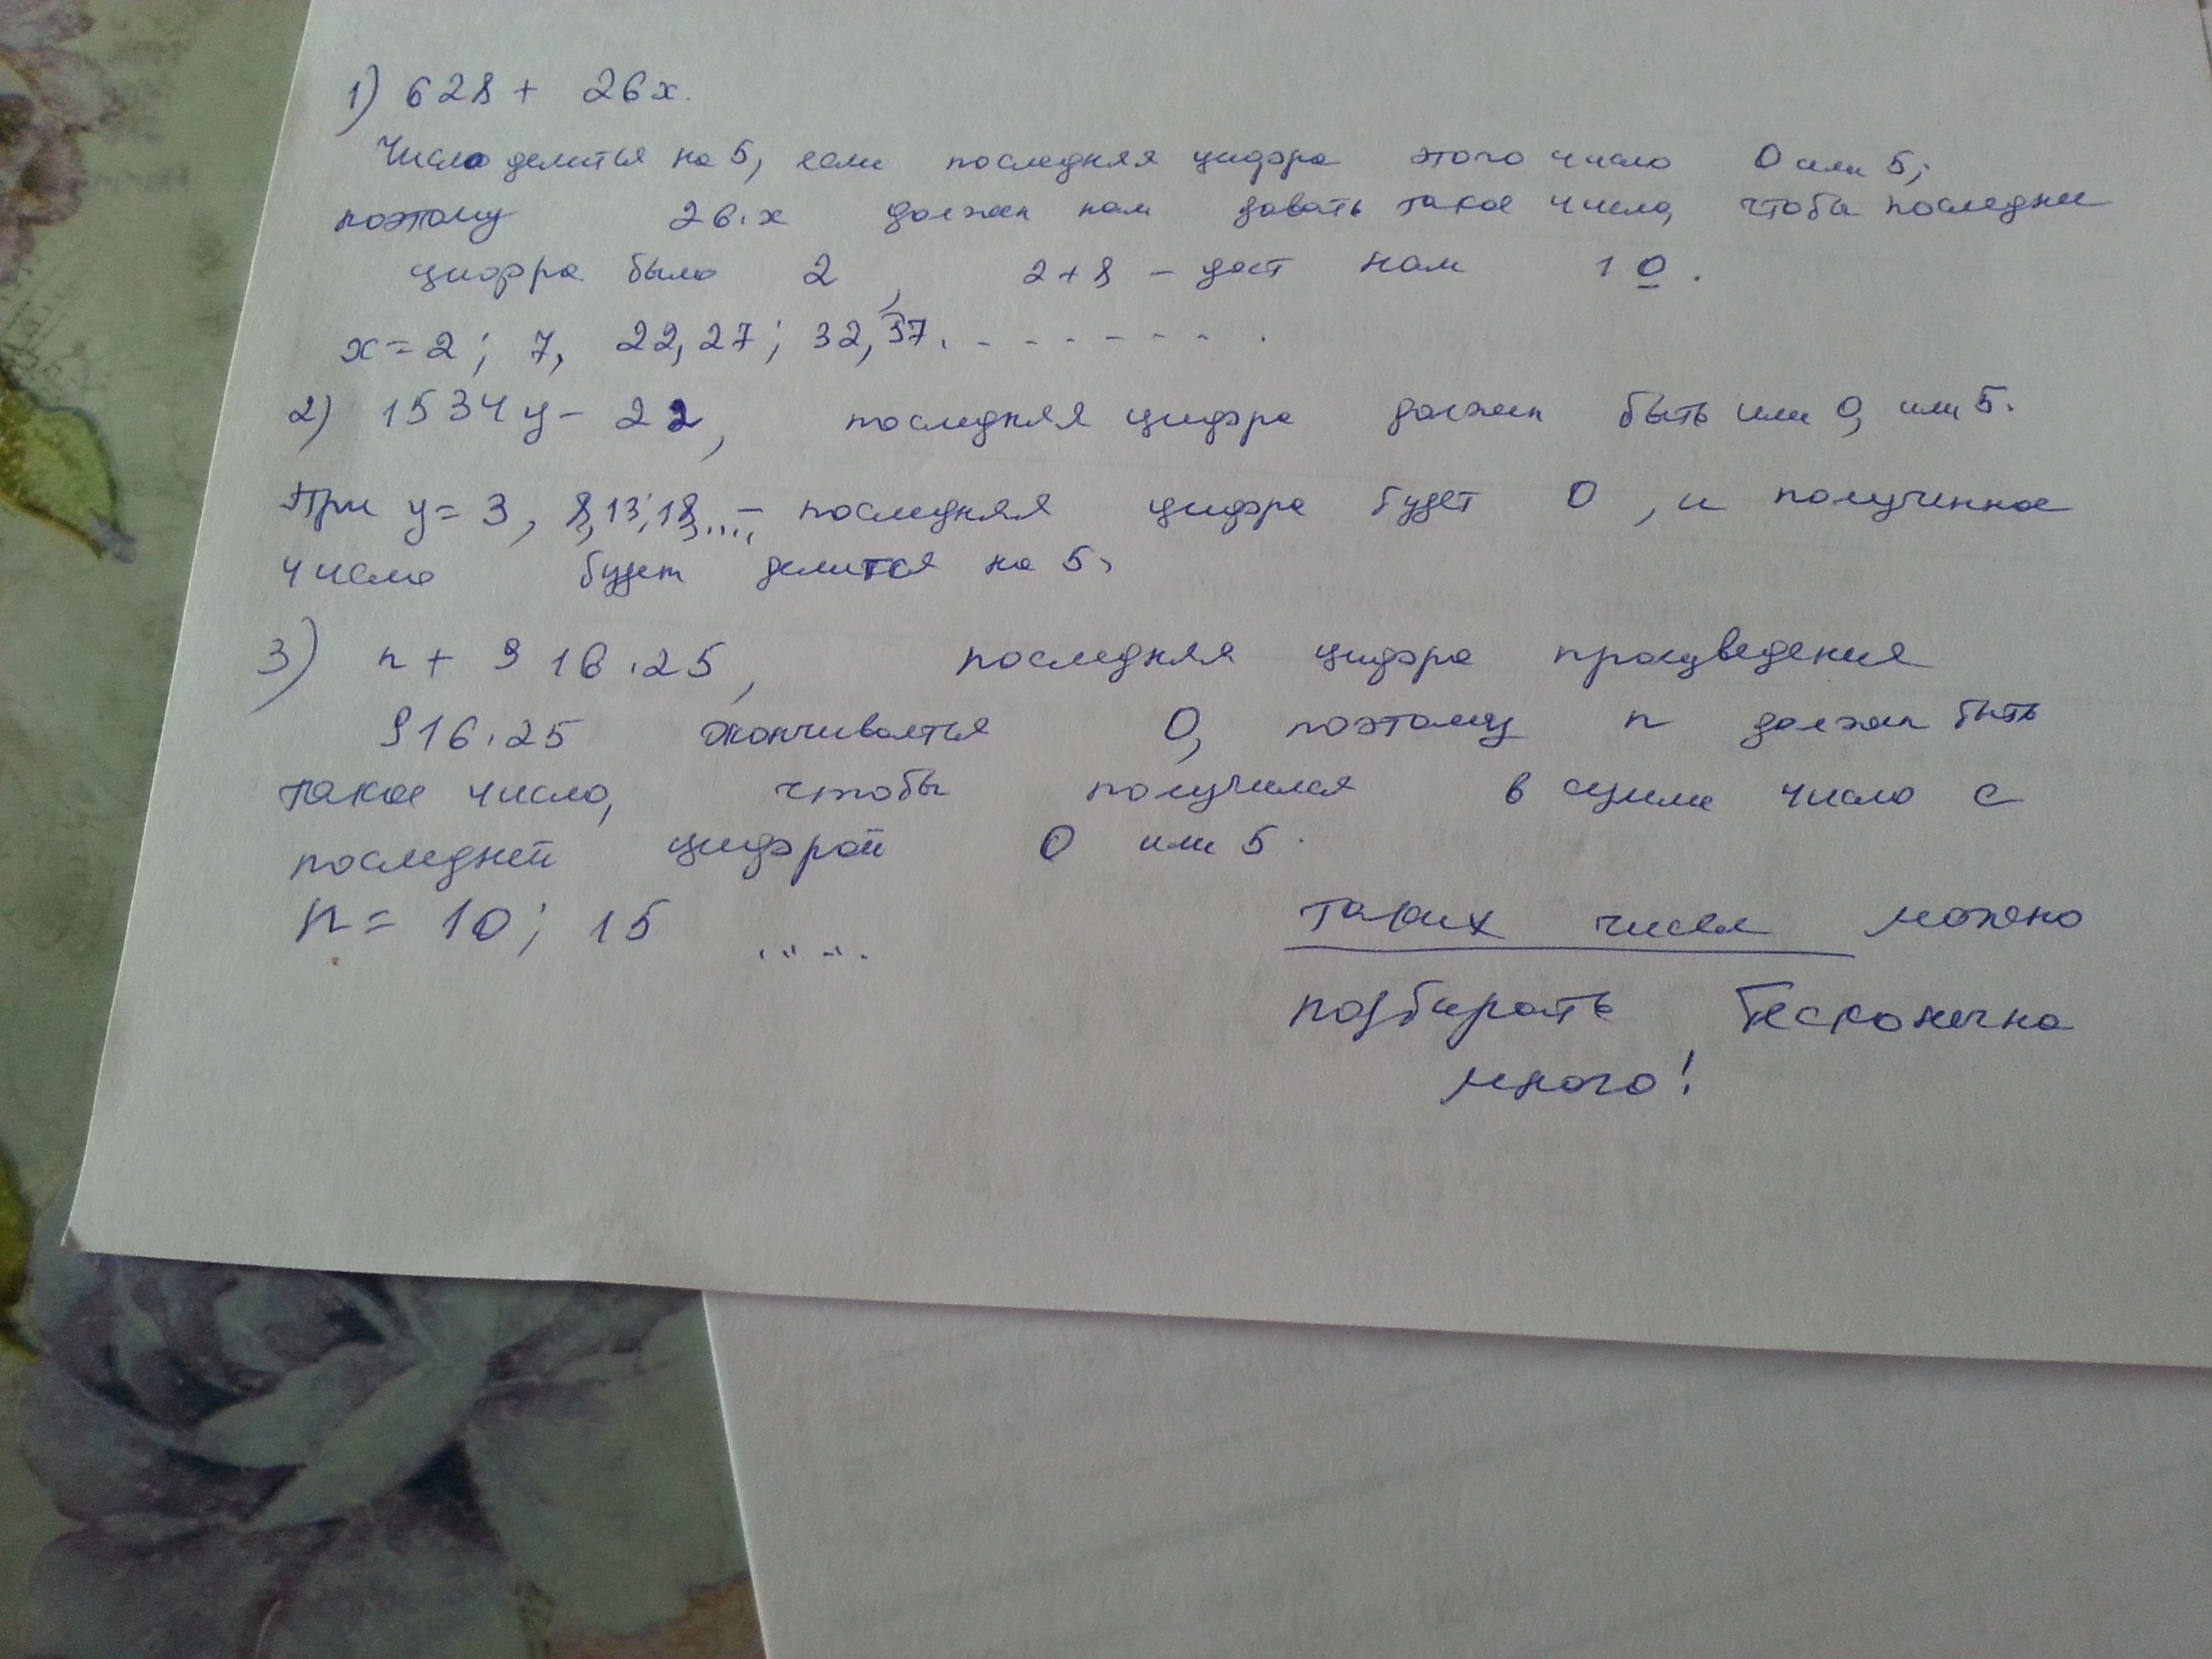 1) 628 + 26x.
Число делится на 5, если последняя цифра этого число 0 или 5;
поэтому 26·x должен нам давать такое число, чтобы последние
цифра было 2, 2+8 – даст нам 10.
x = 2; 7, 22, 27; 32, 37. - - - - - - - .
2) 1534y – 22, последняя цифра должен быть или 0, или 5.
При y = 3, 8, 13; 18, ...., – последняя цифра будет 0, и полученное
число будет делится на 5,
3) n + 916·25, последняя цифра произведения
916·25 оканчивается 0, поэтому n должен быть
такое число, чтобы получился в сумме число с
последней цифрой 0 или 5.
n = 10; 15 .....
таких чисел можно
подбирать бесконечно
много!